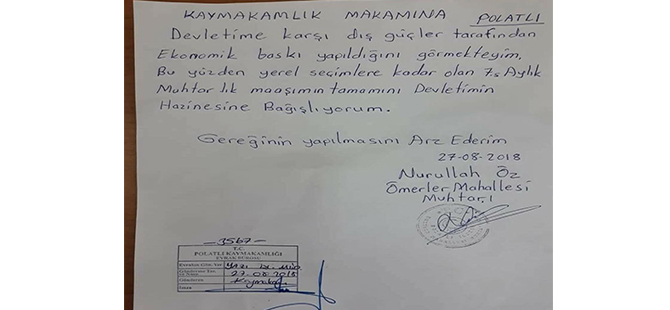 KAYMAKAMLIK MAKAMINA POLATLI
Devletime karşı dış güçler tarafından
Ekonomik baskı yapıldığını görmekteyim,
Bu yüzden yerel seçimlere kadar olan 7,5 Aylık
Muhtarlık maaşımın tamamını Devletimin
Hazinesine Bağışlıyorum.
Gereğinin yapılmasını Arz Ederim
27-08-2018
Nurullah Öz
Ömerler Mahallesi
Muhtarı
3567
T.C.
POLATLI KAYMAKAMLIĞI
EVRAK BÜROSU
27.08.2018